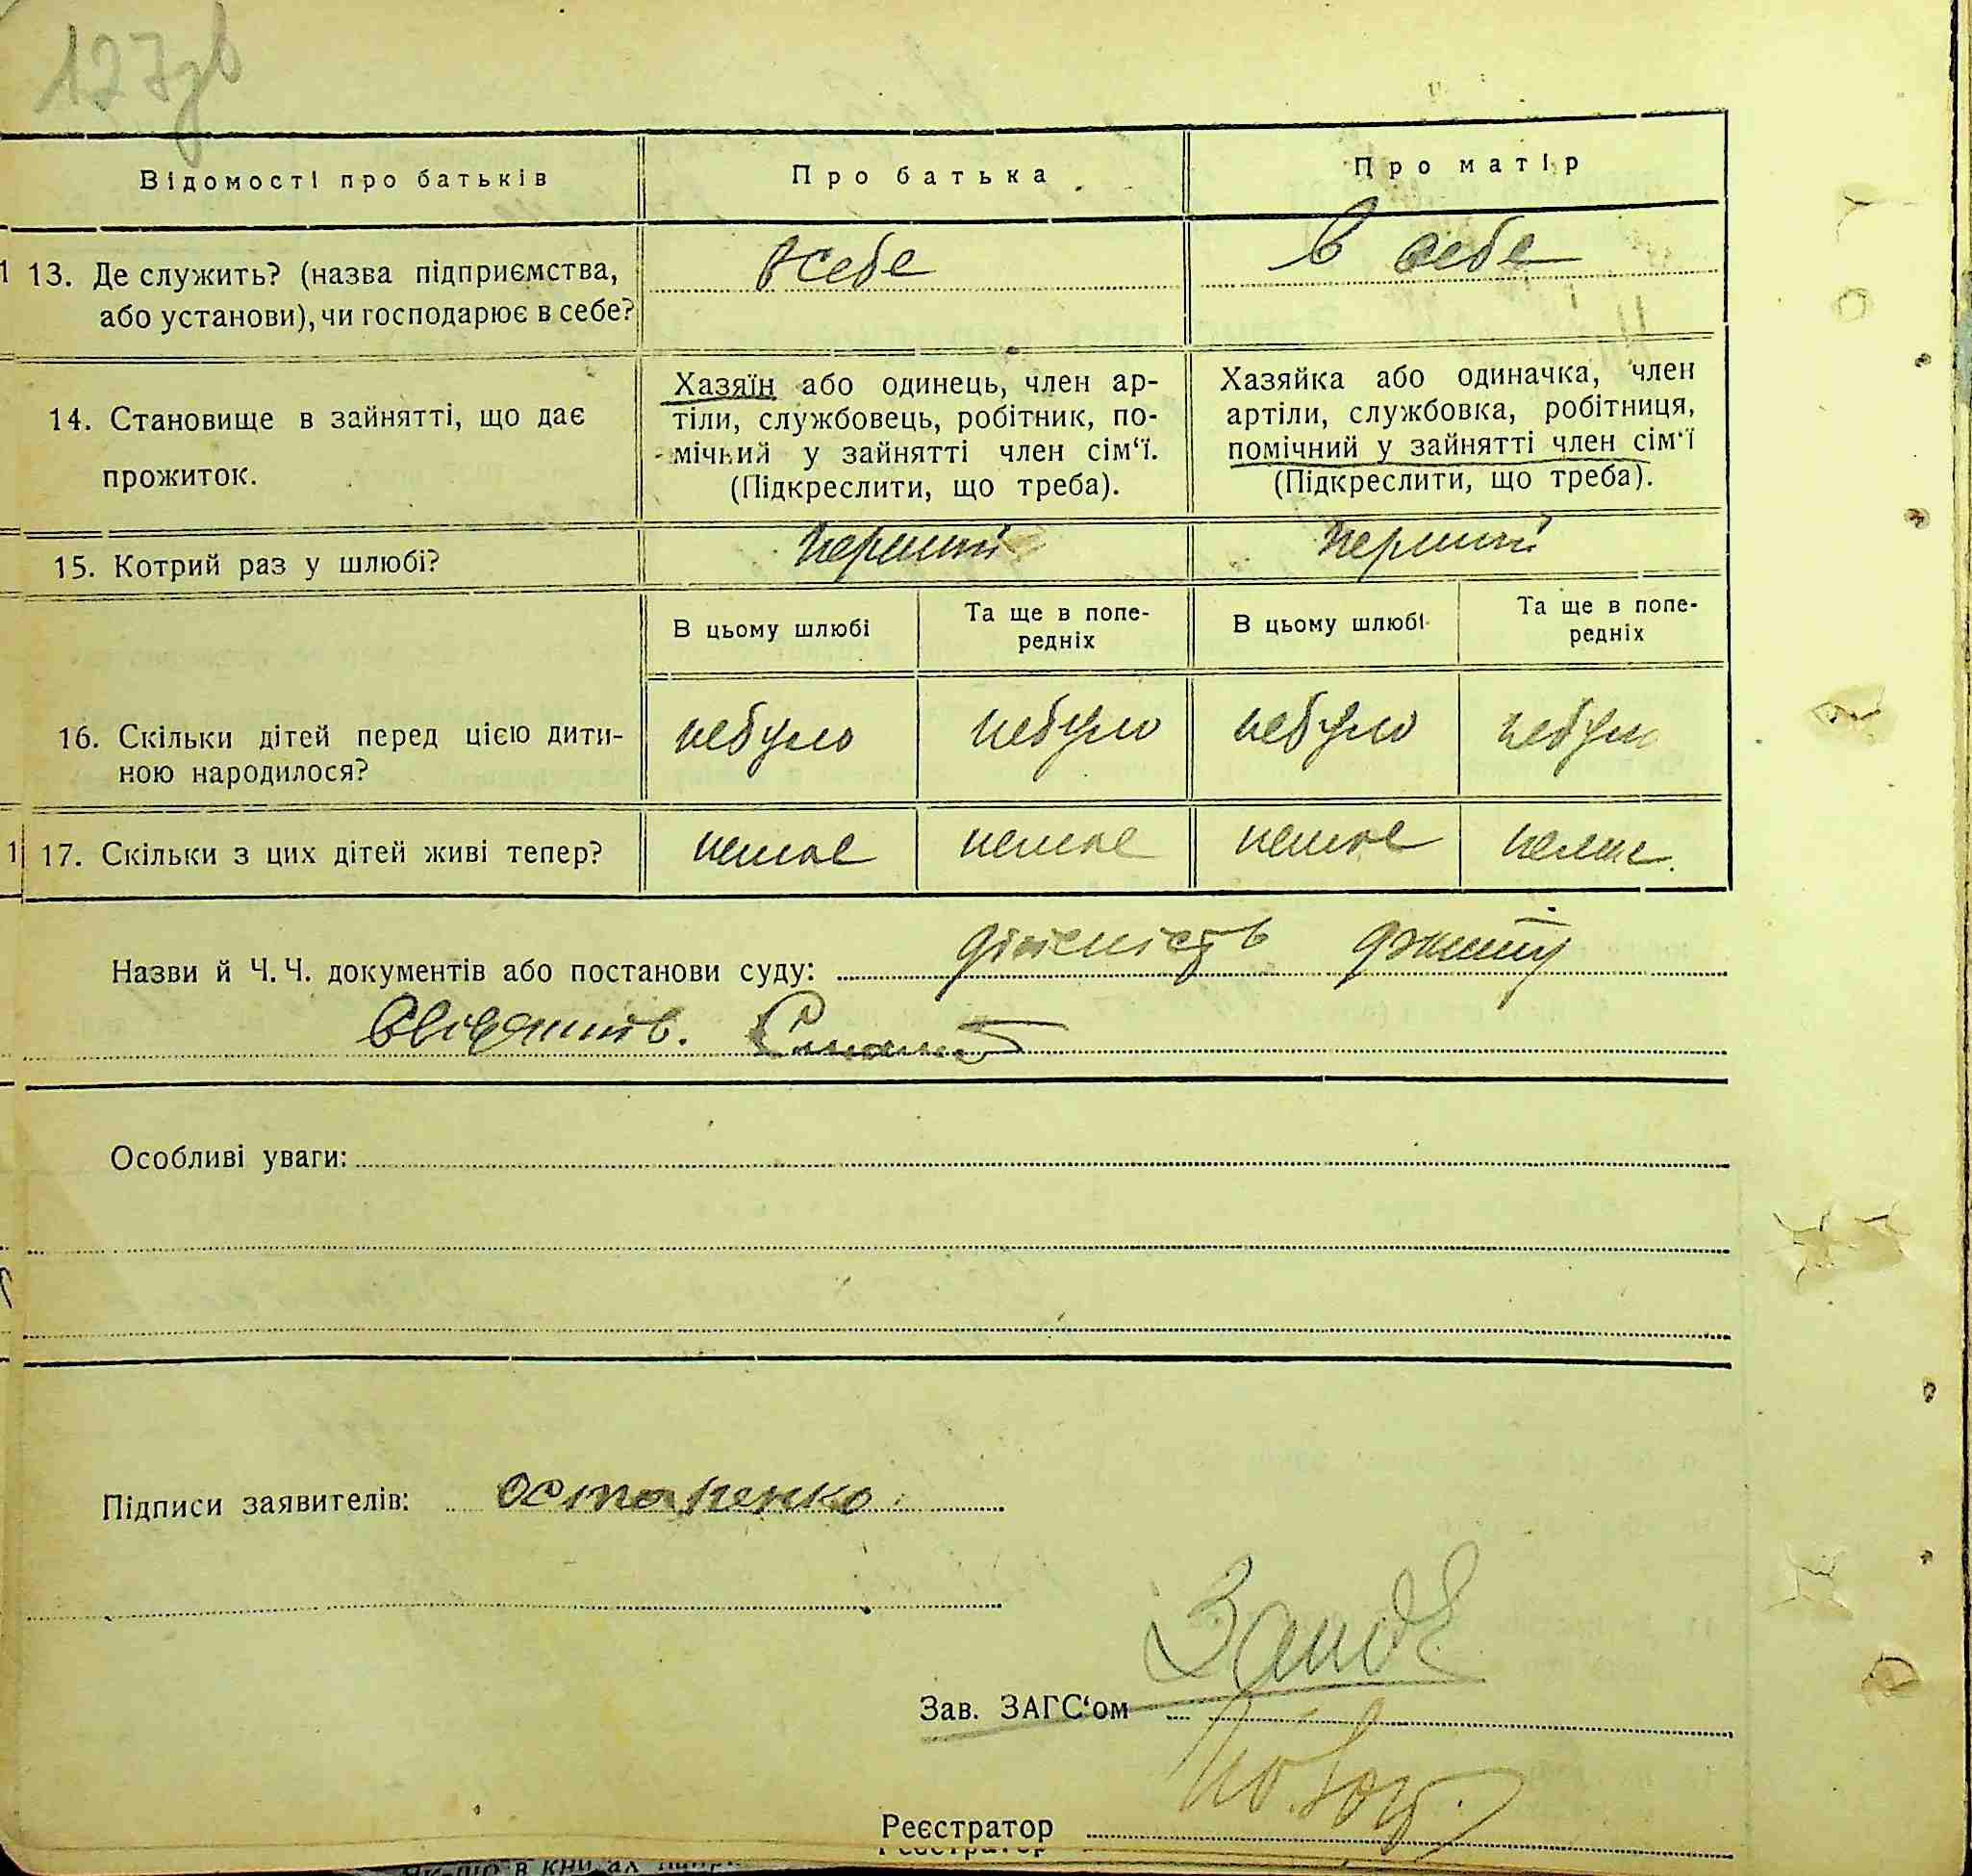 127зв
Відомості про батьків Про батька Про матір
13. Де служить? (назва підприємства, або установи), чи господарює в себе? в себе в себе
14. Становище в зайнятті, що дає прожиток.
Хазяїн або одинець, член ар-
тіли, службовець, робітник, по-
мічний у зайнятті член сім‘ї.
(Підкреслити, що треба).
Хазяйка або одиначка, член
артіли, службовка, робітниця,
помічний у зайнятті член сім‘ї
(Підкреслити, що треба).
15. Котрий раз у шлюбі? перший перший
В цьому шлюбі Та ще в попе-
редніх В цьому шлюбі Та ще в попе-
редніх
16. Скільки дітей перед цією дити-
ною народилося? небуло небуло небуло небуло
17. Скільки з цих дітей живі тепер? немає немає немає немає
Назви й Ч. Ч. документів або постанови суду: дійсність
Особливі уваги:
Підписи заявителів: Остапенко
Зав. ЗАГС‘ом
Реєстратор